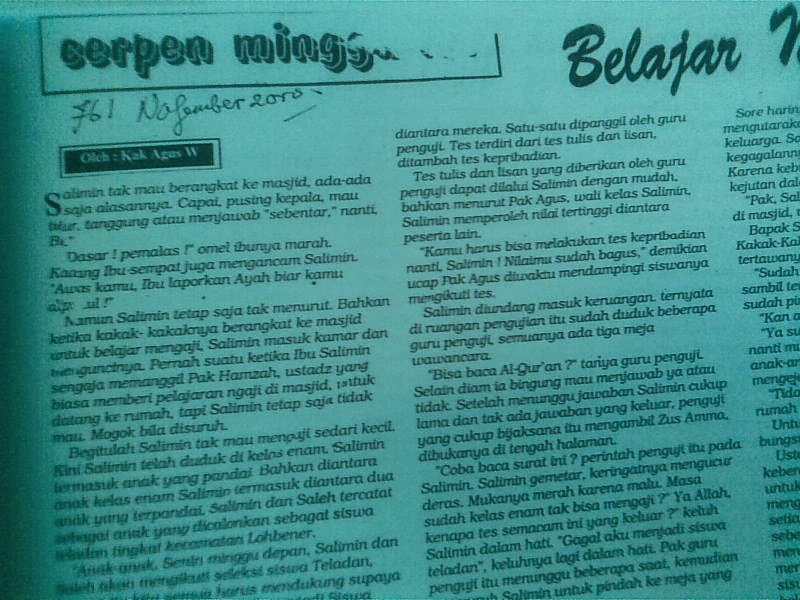 cerpen minggu
Belajar
761 Nofember 2010
Oleh : Kak Agus W
Salimin tak mau berangkat ke masjid, ada-ada
saja alasannya. Capai, pusing kepala, mau
tidur, tanggung atau menjawab "sebentar," nanti,
"Dasar ! pemalas !" omel ibunya marah.
Kadang Ibu sempat juga mengancam Salimin.
"Awas kamu, Ibu laporkan Ayah biar kamu
!"
Namun Salimin tetap saja tak menurut. Bahkan
ketika kakak- kakaknya berangkat ke masjid
untuk belajar mengaji, Salimin masuk kamar dan
menguncinya. Pernah suatu ketika Ibu Salimin
sengaja memanggil Pak Hamzah, ustadz yang
biasa memberi pelajaran ngaji di masjid, untuk
datang ke rumah, tapi Salimin tetap saja tidak
mau. Mogok bila disuruh.
Begitulah Salimin tak mau mengaji sedari kecil.
Kini Salimin telah duduk di kelas enam. Salimin
termasuk anak yang pandai. Bahkan diantara
anak kelas enam Salimin termasuk diantara dua
anak yang terpandai. Salimin dan Saleh tercatat
sebagai anak yang dicalonkan sebagai siswa
teladan tingkat kecamatan Lohbener.
"Anak-anak, Senin minggu depan, Salimin dan
Saleh akan mengikuti seleksi siswa Teladan,
kita semua harus mendukung supaya
Siswa
diantara mereka. Satu-satu dipanggil oleh guru
penguji. Tes terdiri dari tes tulis dan lisan,
ditambah tes kepribadian.
Tes tulis dan lisan yang diberikan oleh guru
penguji dapat dilalui Salimin dengan mudah,
bahkan menurut Pak Agus, wali kelas Salimin,
Salimin memperoleh nilai tertinggi diantara
peserta lain.
"Kamu harus bisa melakukan tes kepribadian
nanti, Salimin ! Nilaimu sudah bagus," demikian
ucap Pak Agus diwaktu mendampingi siswanya
mengikuti tes.
Salimin diundang masuk keruangan. ternyata
di ruangan pengujian itu sudah duduk beberapa
guru penguji, semuanya ada tiga meja
wawancara.
"Bisa baca Al-Qur'an ?" tanya guru penguji.
Selain diam ia bingung mau menjawab ya atau
tidak. Setelah menunggu jawaban Salimin cukup
lama dan tak ada jawaban yang keluar, penguji
yang cukup bijaksana itu mengambil Zus Amma,
dibukanya di tengah halaman.
"Coba baca surat ini ? perintah penguji itu pada
Salimin. Salimin gemetar, keringatnya mengucur
deras. Mukanya merah karena malu. Masa
sudah kelas enam tak bisa mengaji ?" Ya Allah,
kenapa tes semacam ini yang keluar ?" keluh
Salimin dalam hati. "Gagal aku menjadi siswa
teladan", keluhnya lagi dalam hati. Pak guru
penguji itu menunggu beberapa saat, kemudian
Salimin untuk pindah ke meja yang
Sore harin
mengutaraka
keluarga. Sa
kegagalann
Karena keb
kejutan dala
"Pak, Sal
di masjid,
Bapak S
Kakak-Kak
tertawany
"Sudah
sambil te
sudah pi
"Kan a
"Ya su
nanti m
anak-an
mengeje
"Tida
rumah
Untu
bungs
Uste
keben
untuk
meng
setia
sebe
men
mer
sis